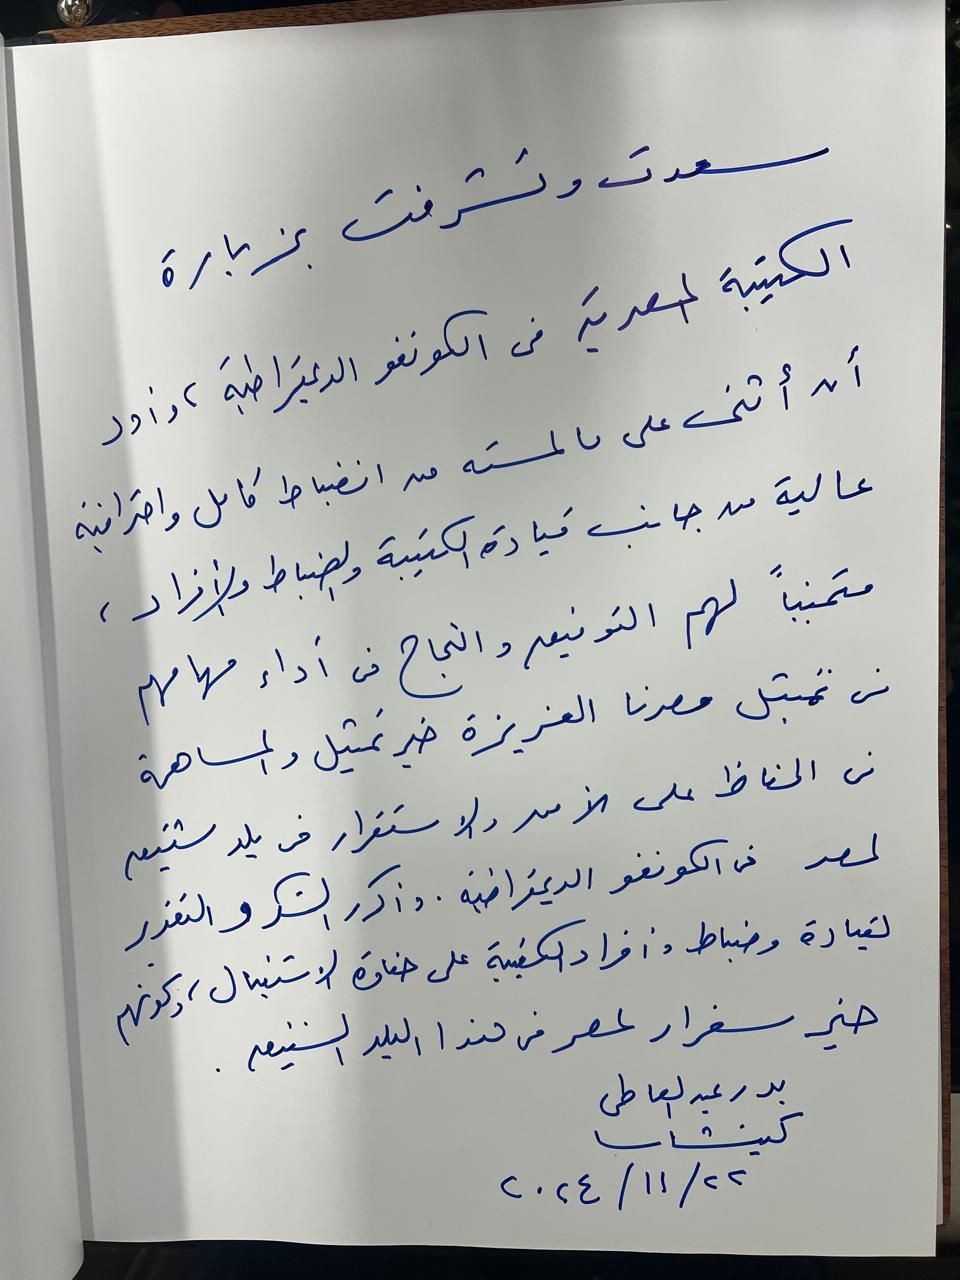 سعدت وتشرفت بزيارة
الكتيبة المصرية فى الكونغو الديمقراطية ، وأود
أن أثنى على ما لمسته من انضباط كامل واحترافية
عالية من جانب قيادة الكتيبة والضباط والأفراد ،
متمنياً لهم التوفيق والنجاح فى أداء مهامهم
فى تمثيل مصرنا العزيزة خير تمثيل والمساهمة
فى الحفاظ على الأمن والاستقرار فى بلد شقيق
لمصر فى الكونغو الديمقراطية . وأكرر الشكر والتقدير
لقيادة وضباط وأفراد الكتيبة على حفاوة الاستقبال ، وكونهم
خير سفراء لمصر فى هذا البلد الشقيق .
بدر عبد العاطى
كينشاسا
٢٠٢٤/١١/٢٢